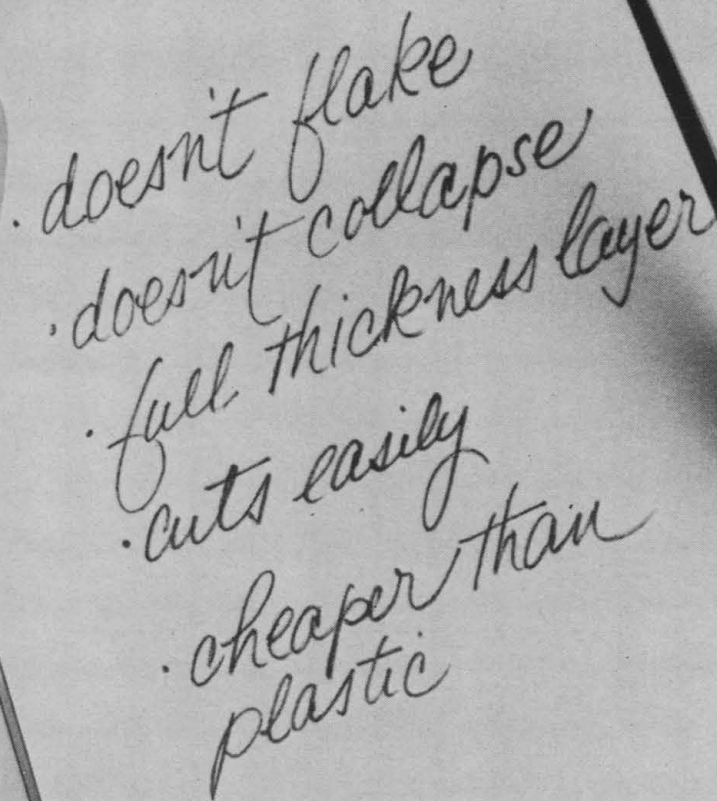 · doesn't flake
· doesn't collapse
· full thickness layer
· cuts easily
· cheaper than
plastic